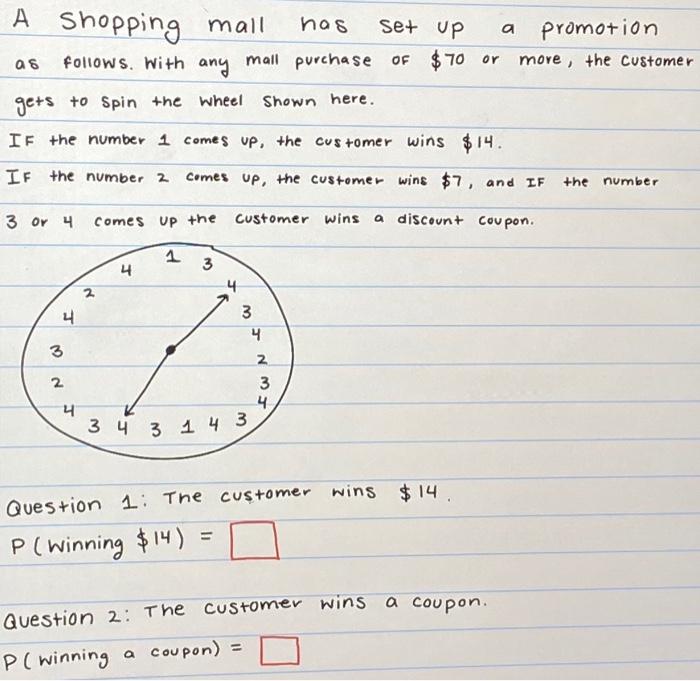 A Shopping mall has set up a promotion
as follows. With any mall purchase of $70 or more, the customer
gets to spin the wheel shown here.
IF the number 1 comes up, the customer wins $14.
IF the number 2 comes up, the customer wins $7, and IF the number
3 or 4 comes up the customer wins a discount coupon.
4 1 3
2 4
4 3
4
3 2
2 3
4 4
3 4 3 1 4 3
Question 1: The customer wins $14.
P(winning $14) =
Question 2: The customer wins a coupon.
P(winning a coupon) =